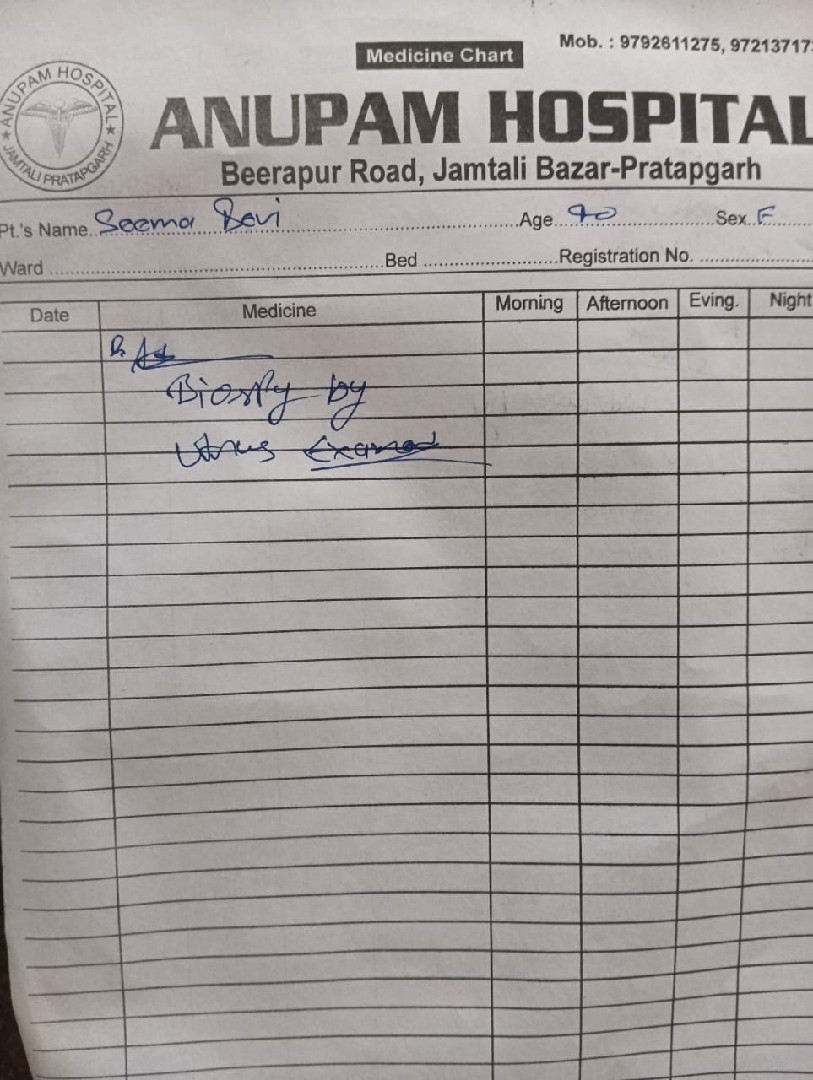 Medicine Chart
Mob. : 9792611275, 972137173
ANUPAM HOSPITAL
JAMTALI PRATAPGARH
ANUPAM HOSPITAL
Beerapur Road, Jamtali Bazar-Pratapgarh
Pt.'s Name Seema Devi Age 40 Sex F
Ward Bed Registration No.
Date Medicine Morning Afternoon Eving. Night
Biospy by
Utrus